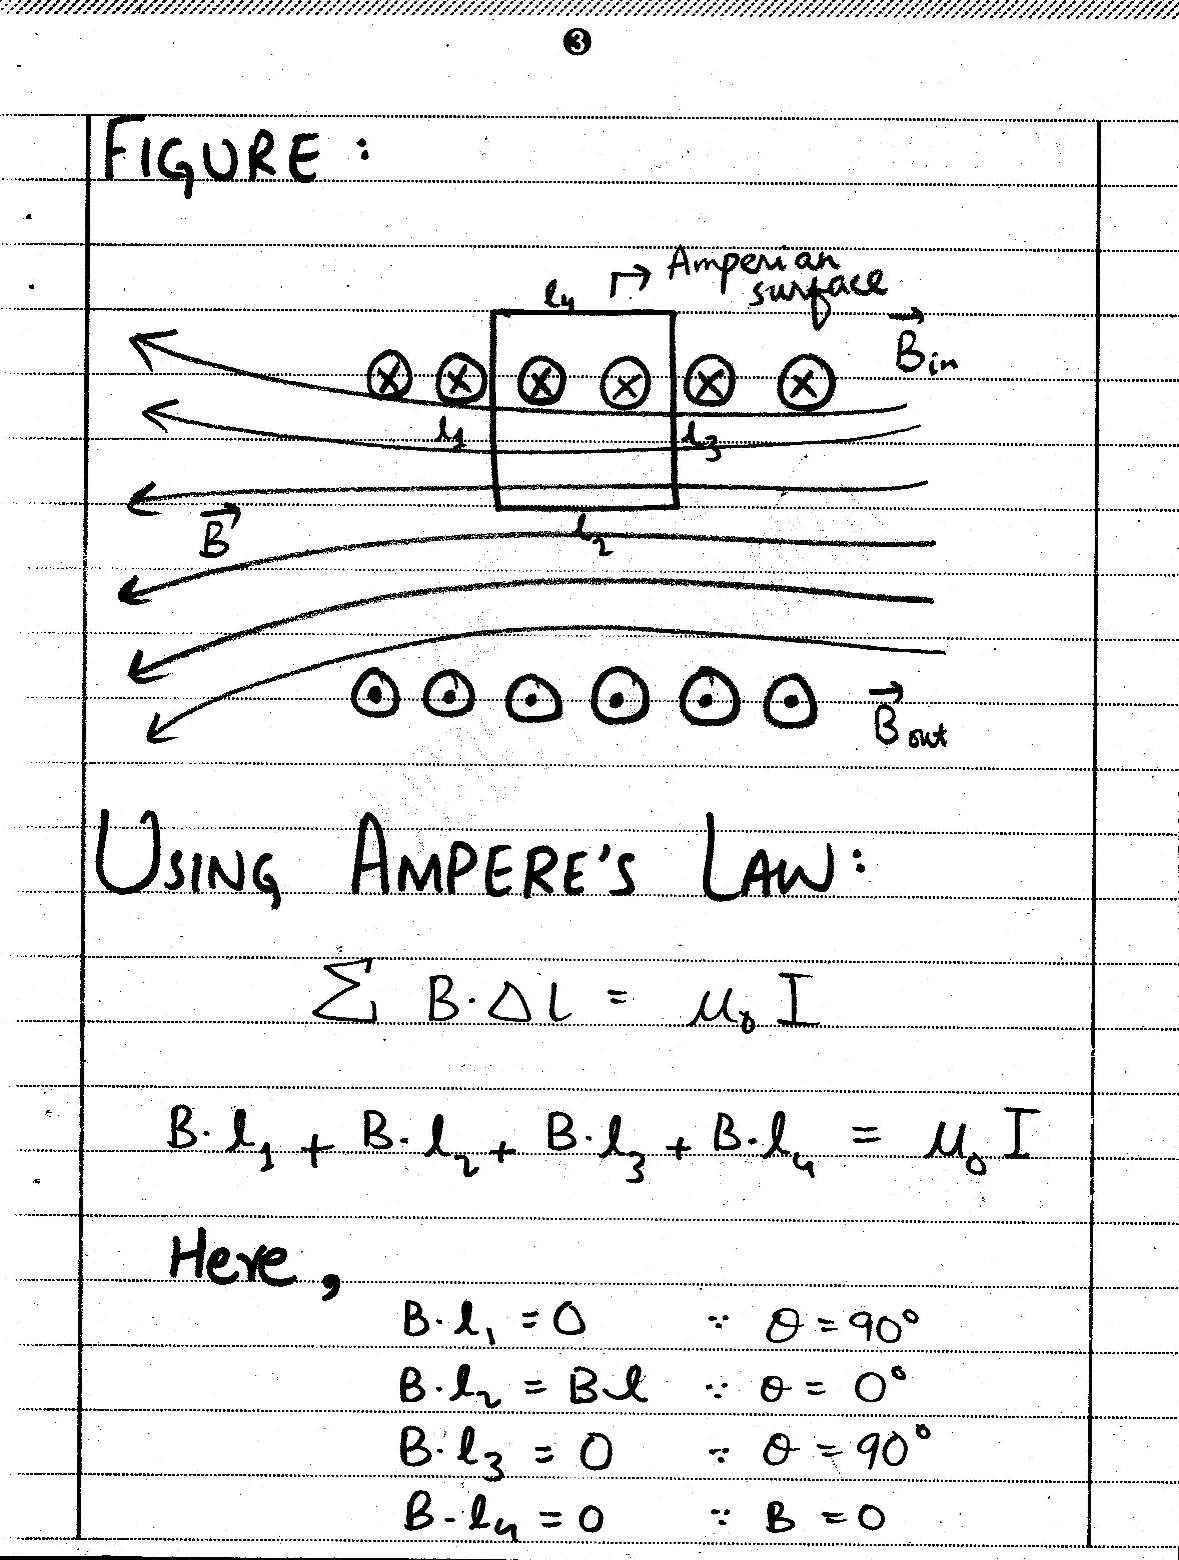 3
FIGURE :
Amperian
surface
l₄
B⃗in
l₁
l₃
B⃗
l₂
B⃗out
USING AMPERE'S LAW :
∑ B·Δl = μ₀I
B·l₁ + B·l₂ + B·l₃ + B·l₄ = μ₀I
Here,
B·l₁ = 0 ∵ θ = 90°
B·l₂ = Bl ∵ θ = 0°
B·l₃ = 0 ∵ θ = 90°
B·l₄ = 0 ∵ B = 0